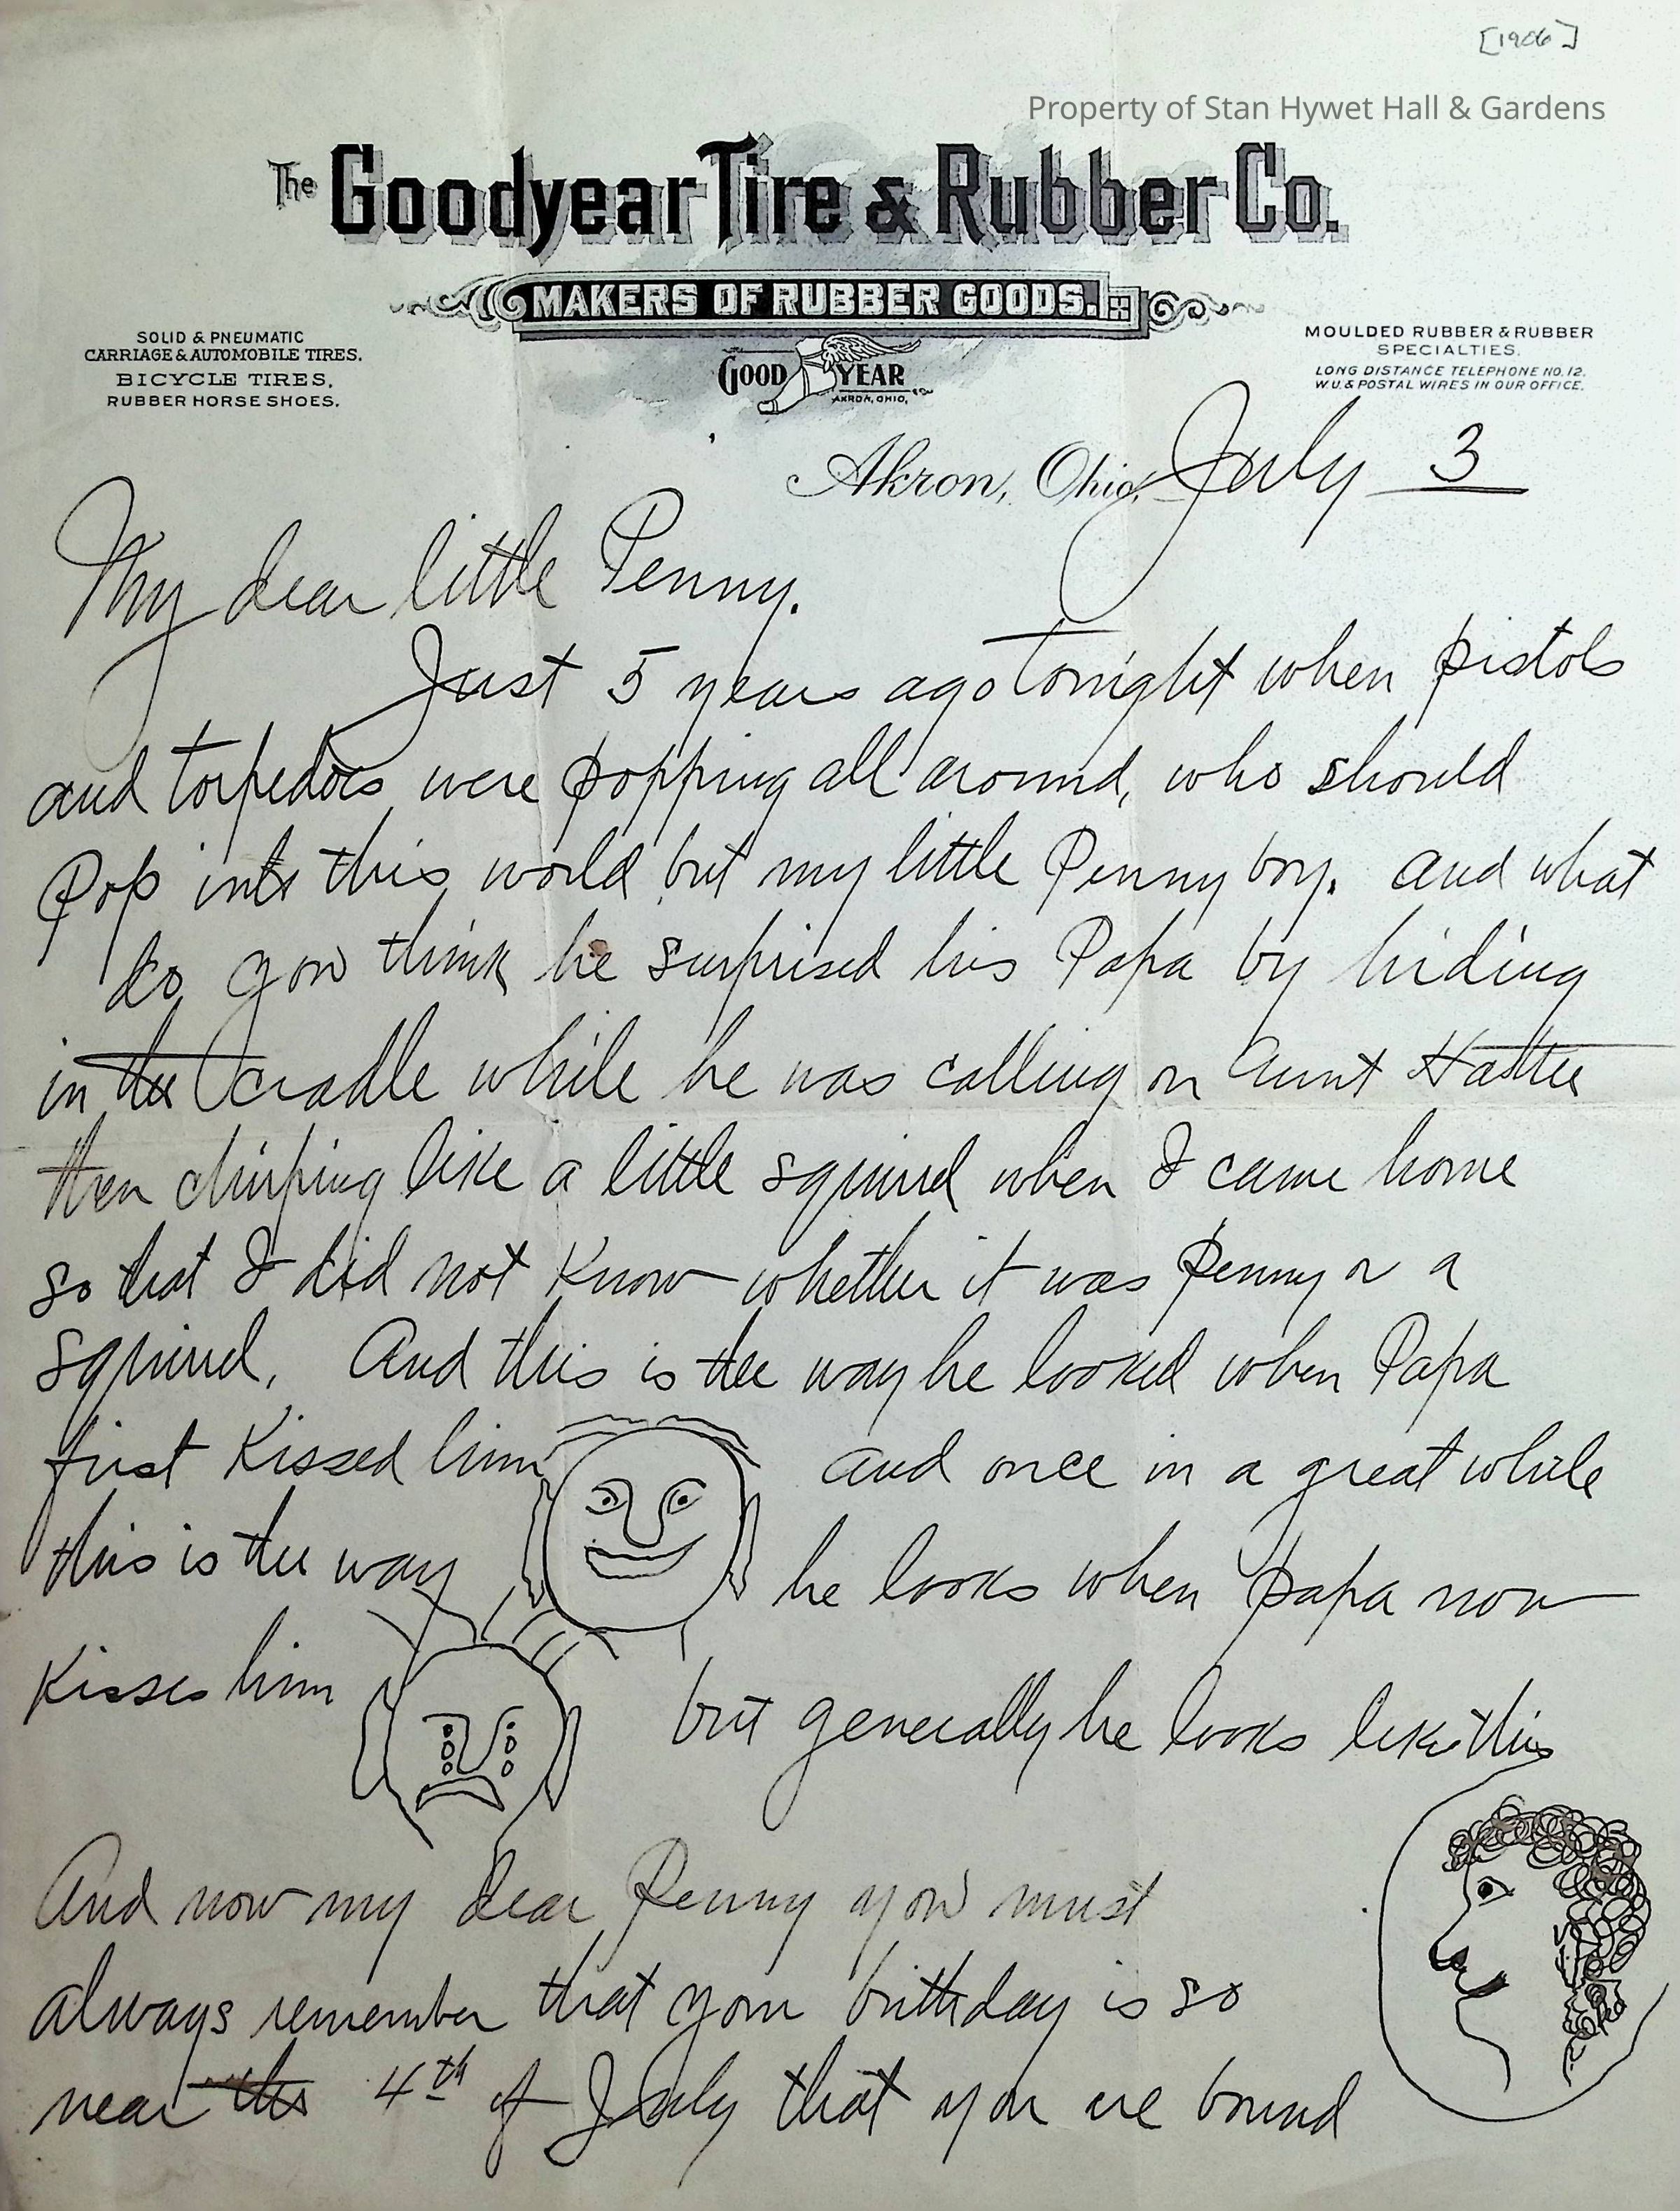 [1906]
Property of Stan Hywet Hall & Gardens
The Goodyear Tire & Rubber Co.
MAKERS OF RUBBER GOODS.
SOLID & PNEUMATIC
CARRIAGE & AUTOMOBILE TIRES.
BICYCLE TIRES,
RUBBER HORSE SHOES.
GOOD YEAR
AKRON, OHIO,
MOULDED RUBBER & RUBBER
SPECIALTIES.
LONG DISTANCE TELEPHONE NO. 12.
W.U. & POSTAL WIRES IN OUR OFFICE.
Akron, Ohio, July 3
My dear little Penny.
Just 5 years ago tonight when pistols
and torpedoes were popping all around, who should
Pop into this world but my little Penny boy. and what
do you think he surprised his Papa by hiding
in the cradle while he was calling on Aunt Hattie
then chirping like a little squirrel when I came home
so that I did not know whether it was Penny or a
squirrel. And this is the way he looked when Papa
first kissed him and once in a great while
this is the way he looks when papa now
kisses him but generally he looks like this
And now my dear Penny you must
always remember that your birthday is so
near the 4th of July that you are bound